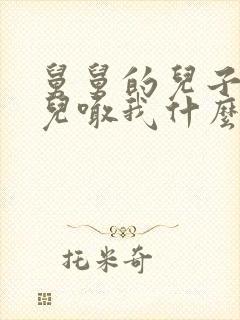 舅舅的兒子
兒噉我什麼
托米奇